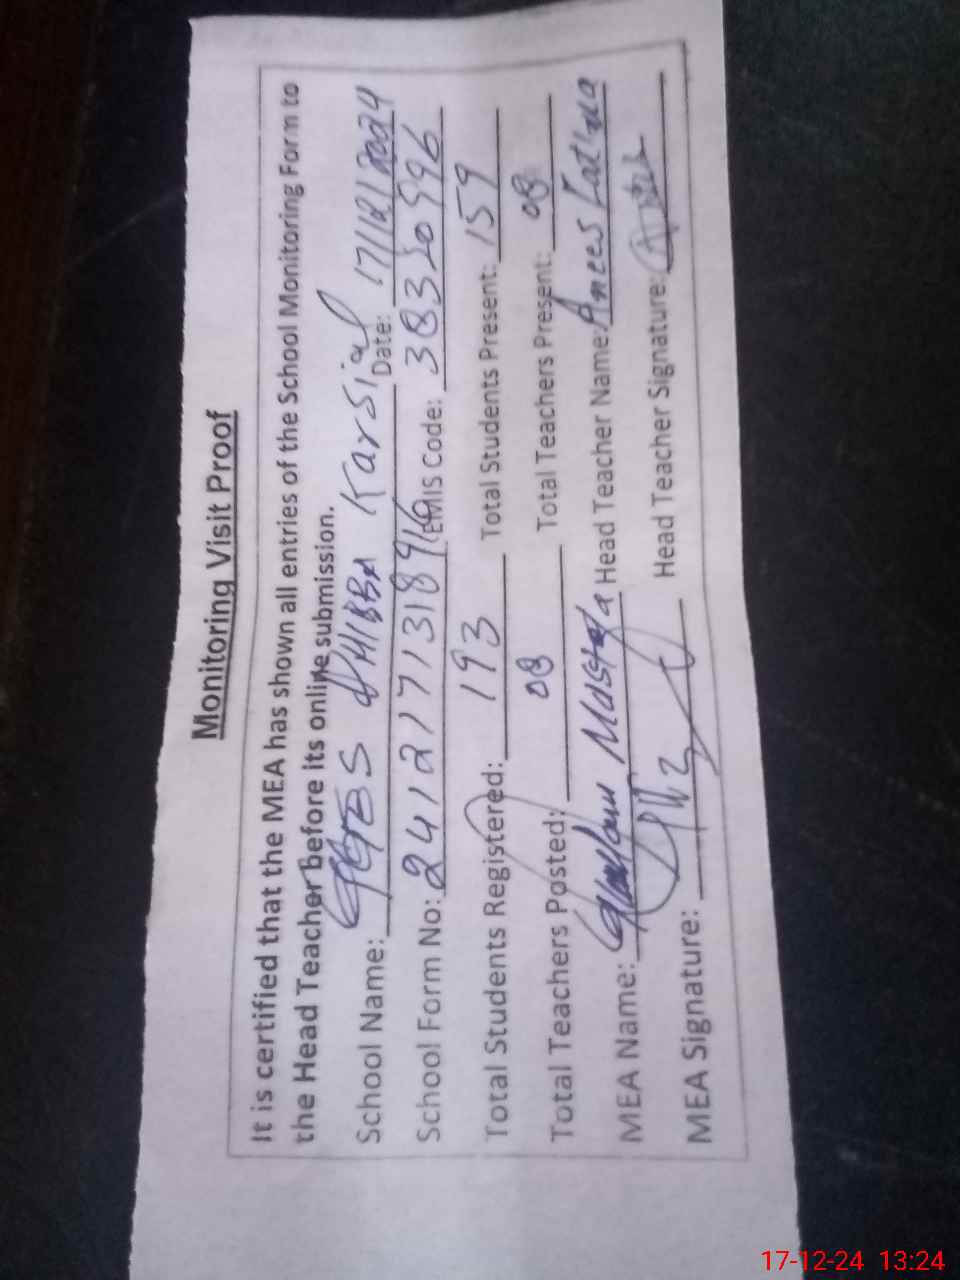 Monitoring Visit Proof
It is certified that the MEA has shown all entries of the School Monitoring Form to
the Head Teacher before its online submission.
School Name: GGES DHIBBA Karsial Date: 17/12/2024
School Form No: EMIS Code:
Total Students Registered: 193 Total Students Present: 159
Total Teachers Posted: 08 Total Teachers Present: 08
MEA Name: Ghulam Mustafa Head Teacher Name: Anees Fatima
MEA Signature: Head Teacher Signature:
17-12-24 13:24